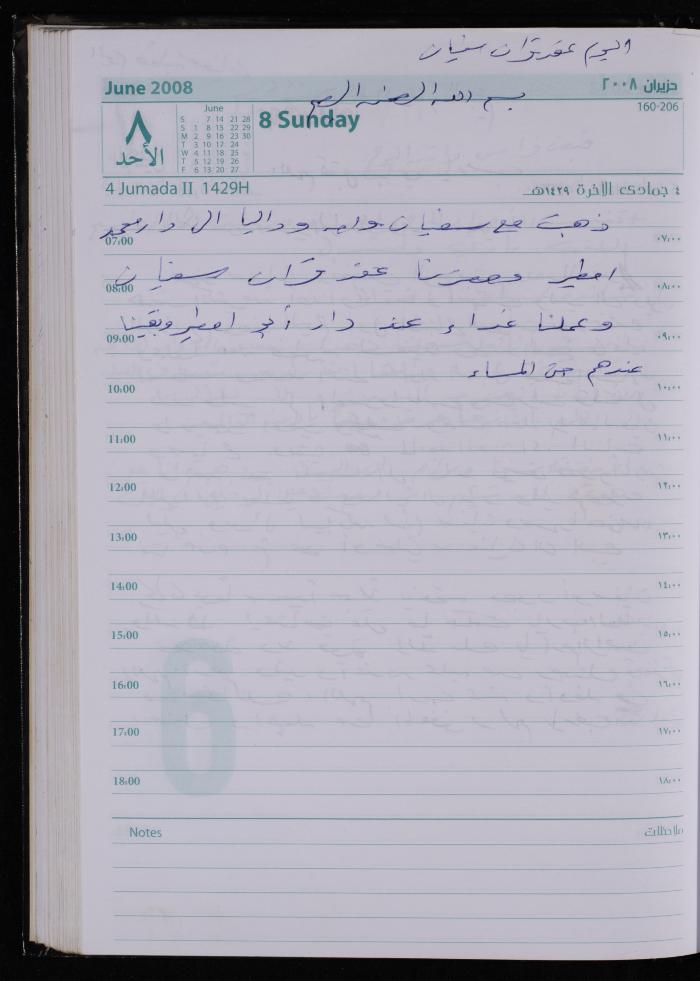 اليوم عقد قران سفيان
June 2008
حزيران ٢٠٠٨
بسم الله الرحمن الرحيم
160-206
٨
الأحد
June
S 7 14 21 28
S 1 8 15 22 29
M 2 9 16 23 30
T 3 10 17 24
W 4 11 18 25
T 5 12 19 26
F 6 13 20 27
8 Sunday
4 Jumada II 1429H
٤ جمادى الآخرة ١٤٢٩هـ
ذهبت مع سفيان وامه وداليا الى دار محمد
07:00 ٠٧:٠٠
امطير وحضرنا عقد قران سفيان
08:00 ٠٨:٠٠
وعملنا غداء عند دار أبو امطير وبقينا
09:00 ٠٩:٠٠
عندهم حتى المساء
10:00 ١٠:٠٠
11:00 ١١:٠٠
12:00 ١٢:٠٠
13:00 ١٣:٠٠
14:00 ١٤:٠٠
15:00 ١٥:٠٠
16:00 ١٦:٠٠
17:00 ١٧:٠٠
18:00 ١٨:٠٠
6
Notes
ملاحظات